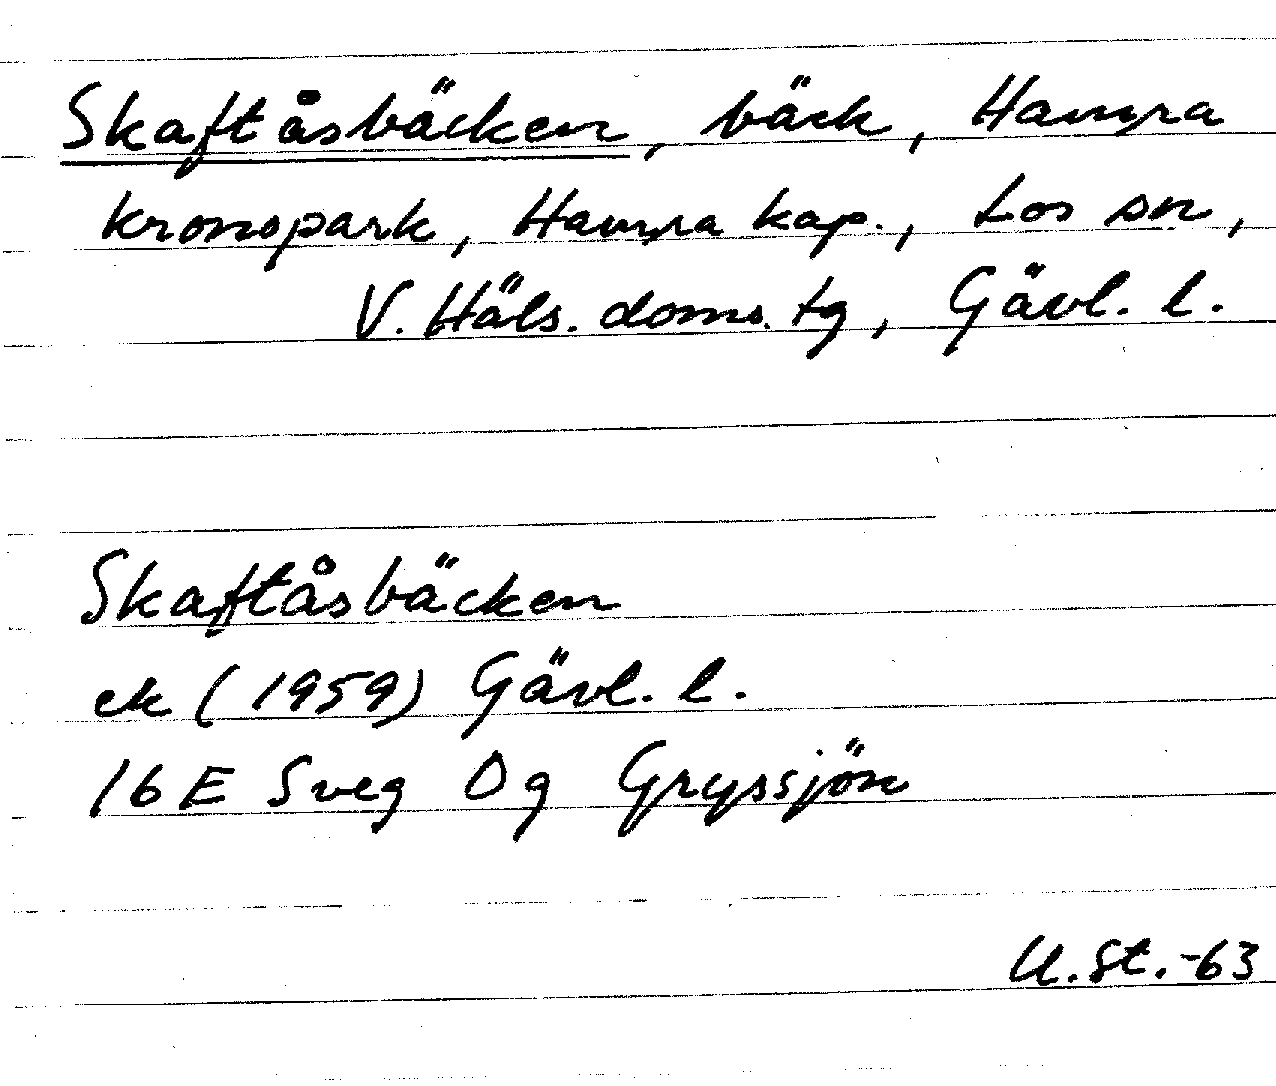 Skaftåsbäcken, bäck, Hamra
kronopark, Hamra kap., Los sn,
V. Häls. doms. tg, Gävl. l.
Skaftåsbäcken
ek (1959) Gävl. l.
16 E Sveg 0g Gryssjön
U. St. -63